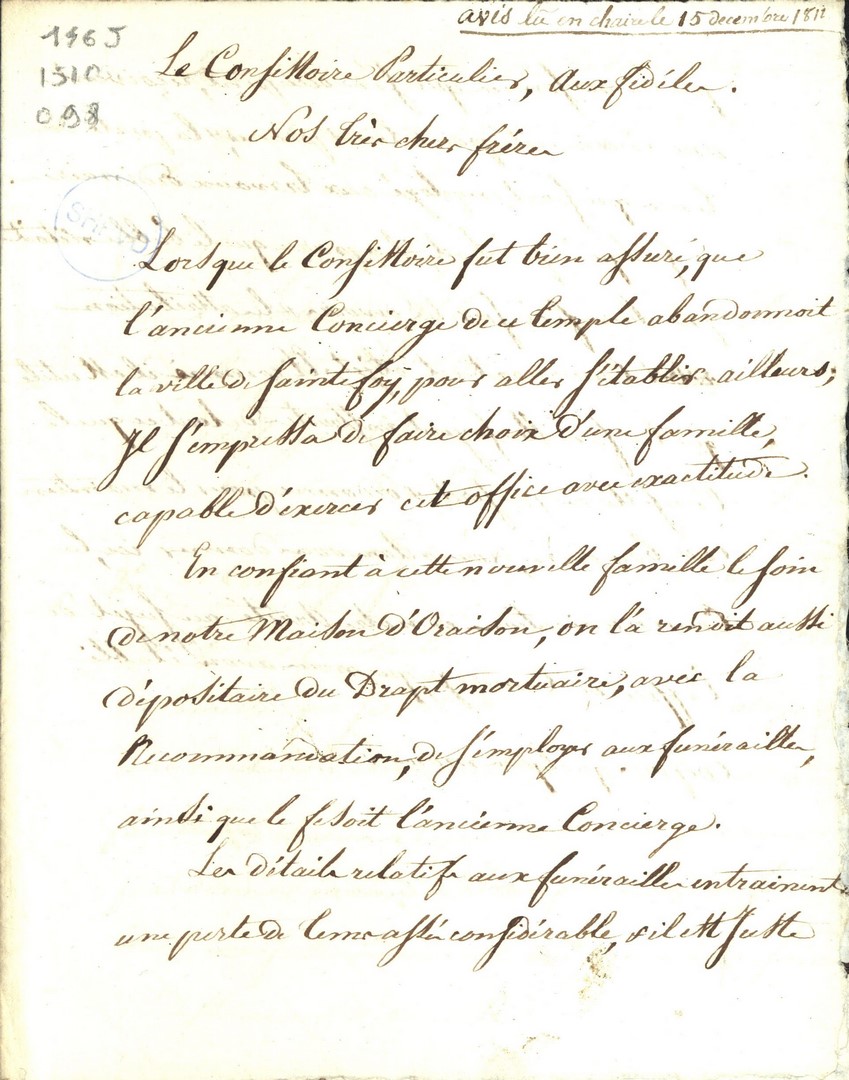 avis lû en chaire le 15 decembre 1811
196J
1510
098
Le Consistoire Particulier, Aux fidéles.
Nos très chers fréres
SHPVD
Lorsque le Consistoire fut bien assuré, que
l'ancienne Concierge de ce temple abandonnoit
la ville de Sainte foÿ, pour aller s'établir ailleurs,
Il s'empressa de faire choix d'une famille,
capable d'éxercer cet office avec exactitude.
En confiant à cette nouvelle famille le soin
de notre Maison d'Oraison, on la rendit aussi
dépositaire du Drapt mortuaire, avec la
Recommandation, de s'employer aux funérailles,
ainsi que le fesoit l'ancienne Concierge.
Les détails relatifs aux funérailles entrainent
une perte de tems assés considérable, & il est Juste